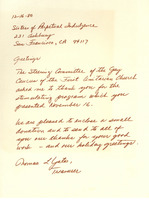 12-16-80
Sisters of Perpetual Indulgence
San Francisco, CA 94117
Greetings
The Steering Committee of the Gay
Caucus of the First Unitarian Church
asked me to thank you for the
stimulating program which you
presented November 16.
We are pleased to enclose a small
donation and to send to all of
you our thanks for your good
work - and our holiday greetings
Thomas L.
Treasurer